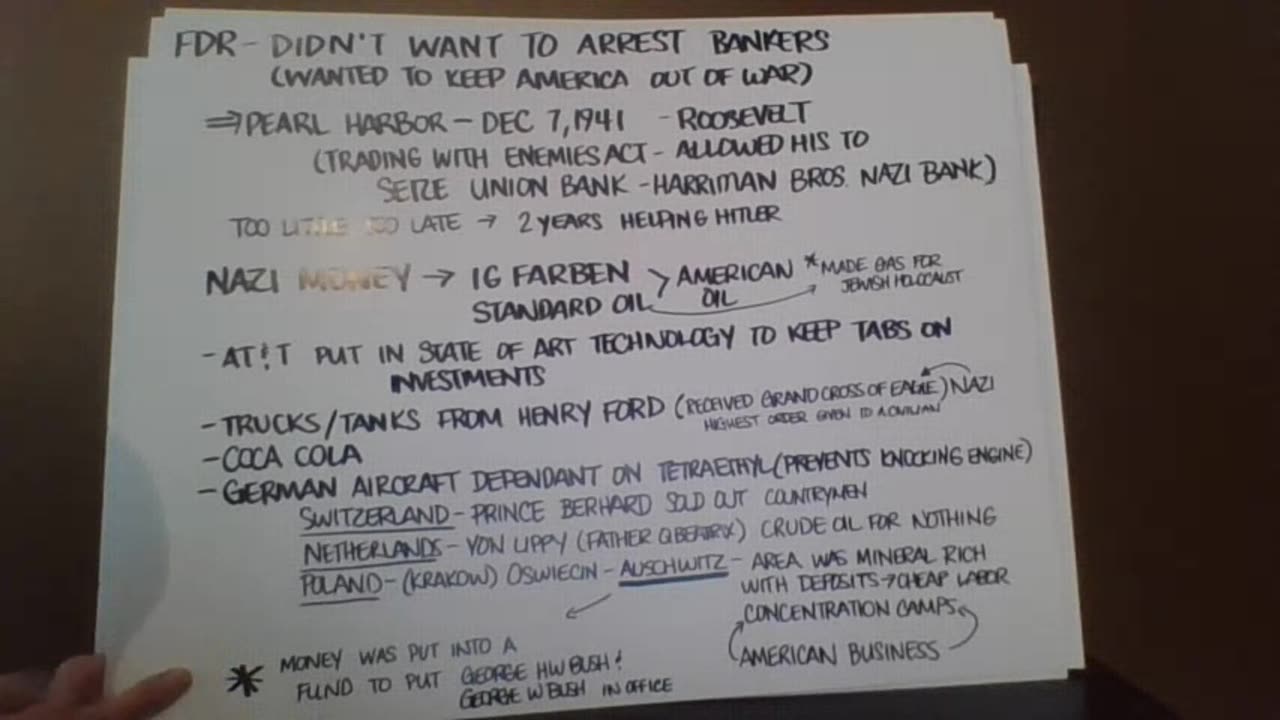 FDR - DIDN'T WANT TO ARREST BANKERS
(WANTED TO KEEP AMERICA OUT OF WAR)
⇒ PEARL HARBOR - DEC 7, 1941 - ROOSEVELT
(TRADING WITH ENEMIES ACT - ALLOWED HIS TO
SEIZE UNION BANK - HARRIMAN BROS. NAZI BANK)
TOO LITTLE TOO LATE → 2 YEARS HELPING HITLER
NAZI MONEY → IG FARBEN > AMERICAN * MADE GAS FOR
STANDARD OIL OIL JEWISH HOLOCAUST
- AT&T PUT IN STATE OF ART TECHNOLOGY TO KEEP TABS ON
INVESTMENTS
- TRUCKS/TANKS FROM HENRY FORD (RECEIVED GRAND CROSS OF EAGLE) NAZI
HIGHEST ORDER GIVEN TO A CIVILIAN
- COCA COLA
- GERMAN AIRCRAFT DEPENDANT ON TETRAETHYL (PREVENTS KNOCKING ENGINE)
SWITZERLAND - PRINCE BERHARD SOLD OUT COUNTRYMEN
NETHERLANDS - VON LIPPY (FATHER Q BEATRIX) CRUDE OIL FOR NOTHING
POLAND - (KRAKOW) OSWIECIN - AUSCHWITZ - AREA WAS MINERAL RICH
WITH DEPOSITS → CHEAP LABOR
CONCENTRATION CAMPS
AMERICAN BUSINESS
* MONEY WAS PUT INTO A
FUND TO PUT GEORGE HW BUSH &
GEORGE W BUSH IN OFFICE